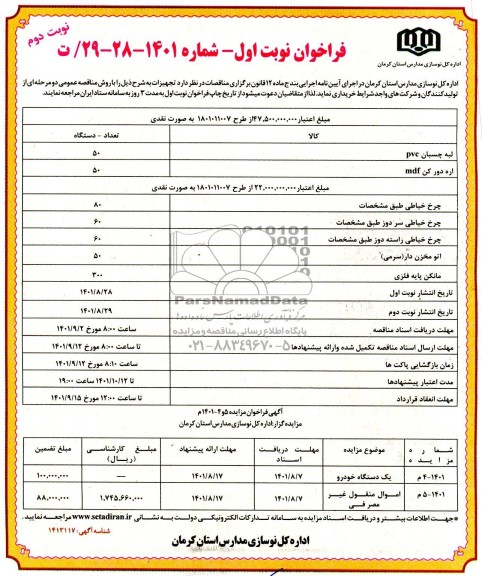 نوبت دوم
فراخوان نوبت اول- شماره ۱۴۰۱-۲۸-۲۹/ ت
اداره کل نوسازی مدارس استان کرمان
اداره کل نوسازی مدارس استان کرمان در اجرای آیین نامه اجرایی بند ج ماده ۱۲ قانون برگزاری مناقصات در نظر دارد تجهیزات به شرح ذیل را با روش مناقصه عمومی دو مرحله ای از
تولیدکنندگان و شرکت های واجد شرایط خریداری نماید. لذا از متقاضیان دعوت میشود از تاریخ چاپ فراخوان نوبت اول به مدت ۳ روز به سامانه ستاد ایران مراجعه نمایند.
مبلغ اعتبار ۴۷,۵۰۰,۰۰۰,۰۰۰ از طرح ۱۸۰۱۰۱۱۰۰۷ به صورت نقدی
کالا تعداد - دستگاه
لبه چسبان pvc ۵۰
اره دور کن mdf ۵۰
مبلغ اعتبار ۲۲,۰۰۰,۰۰۰,۰۰۰ از طرح ۱۸۰۱۰۱۱۰۰۷ به صورت نقدی
چرخ خیاطی طبق مشخصات ۸۰
چرخ خیاطی سر دوز طبق مشخصات ۶۰
چرخ خیاطی راسته دوز طبق مشخصات ۶۰
اتو مخزن دار(سرمی) ۵۰
مانکن پایه فلزی ۳۰۰
تاریخ انتشار نوبت اول ۱۴۰۱/۸/۲۸
تاریخ انتشار نوبت دوم ۱۴۰۱/۸/۲۹
مهلت دریافت اسناد مناقصه ساعت ۸:۰۰ مورخ ۱۴۰۱/۹/۲
مهلت ارسال اسناد مناقصه تکمیل شده وارائه پیشنهادها تا ساعت ۸:۰۰ مورخ ۱۴۰۱/۹/۱۲
زمان بازگشایی پاکت ها ساعت ۸:۱۰ مورخ ۱۴۰۱/۹/۱۲
مدت اعتبار پیشنهادها تا ۱۴۰۱/۱۰/۱۲ ساعت ۱۹:۰۰
مهلت انعقاد قرارداد تا ساعت ۱۲:۰۰ مورخ ۱۴۰۱/۹/۱۵
ParsNamadData
پایگاه اطلاع رسانی مناقصه و مزایده
۰۲۱-۸۸۳۴۹۶۷۰-۵
آگهی فراخوان مزایده ۵و۴-۱۴۰۱م
مزایده گزار: اداره کل نوسازی مدارس استان کرمان
شماره مزایده موضوع مزایده مهلت دریافت اسناد مهلت ارائه پیشنهاد مبلغ کارشناسی (ریال) مبلغ تضمین
۴-۱۴۰۱ م یک دستگاه خودرو ۱۴۰۱/۸/۷ ۱۴۰۱/۸/۱۷ — ۱۰۰,۰۰۰,۰۰۰
۵-۱۴۰۱ م اموال منقول غیر مصرفی ۱۴۰۱/۸/۷ ۱۴۰۱/۸/۱۷ ۱,۷۴۵,۶۶۰,۰۰۰ ۸۸,۰۰۰,۰۰۰
*جهت اطلاعات بیشتر و دریافت اسناد مزایده به سامانه تدارکات الکترونیکی دولت به نشانی www.setadiran.ir مراجعه نمایید.
شناسه آگهی: ۱۴۱۳۱۱۷
اداره کل نوسازی مدارس استان کرمان